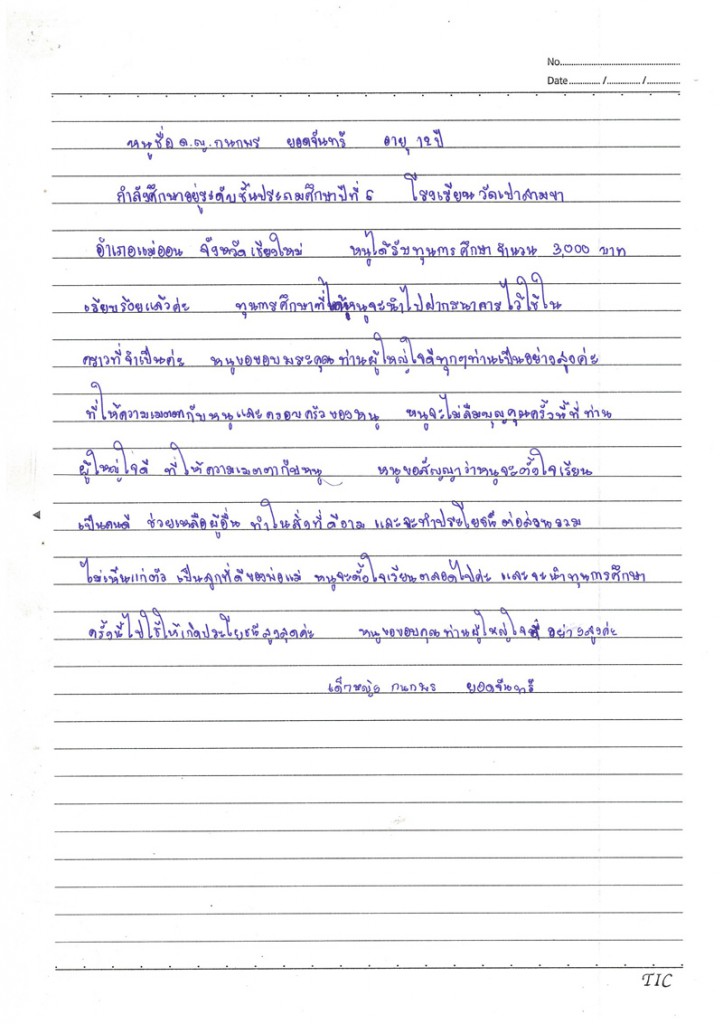 No.
Date / /
หนูชื่อ ด.ญ. กนกพร ยอดจันทร์ อายุ 12 ปี
กำลังศึกษาอยู่ระดับชั้นประถมศึกษาปีที่ 6 โรงเรียน วัดเปาสามขา
อำเภอแม่ออน จังหวัดเชียงใหม่ หนูได้รับทุนการศึกษาจำนวน 3,000 บาท
เรียบร้อยแล้วค่ะ ทุนการศึกษาที่ได้หนูจะนำไปฝากธนาคารไว้ใช้ใน
คราวที่จำเป็นค่ะ หนูขอขอบพระคุณท่านผู้ใหญ่ใจดีทุกๆท่านเป็นอย่างสูงค่ะ
ที่ให้ความเมตตากับหนูและครอบครัวของหนู หนูจะไม่ลืมบุญคุณครั้งนี้ที่ท่าน
ผู้ใหญ่ใจดี ที่ให้ความเมตตากับหนู หนูขอสัญญาว่าหนูจะตั้งใจเรียน
เป็นคนดี ช่วยเหลือผู้อื่น ทำในสิ่งที่ดีงาม และจะทำประโยชน์ต่อส่วนรวม
ไม่เห็นแก่ตัว เป็นลูกที่ดีของพ่อแม่ หนูจะตั้งใจเรียนตลอดไปค่ะ และจะนำทุนการศึกษา
ครั้งนี้ไปใช้ให้เกิดประโยชน์สูงสุดค่ะ หนูขอขอบคุณท่านผู้ใหญ่ใจดี อย่างสูงค่ะ
เด็กหญิง กนกพร ยอดจันทร์
TIC